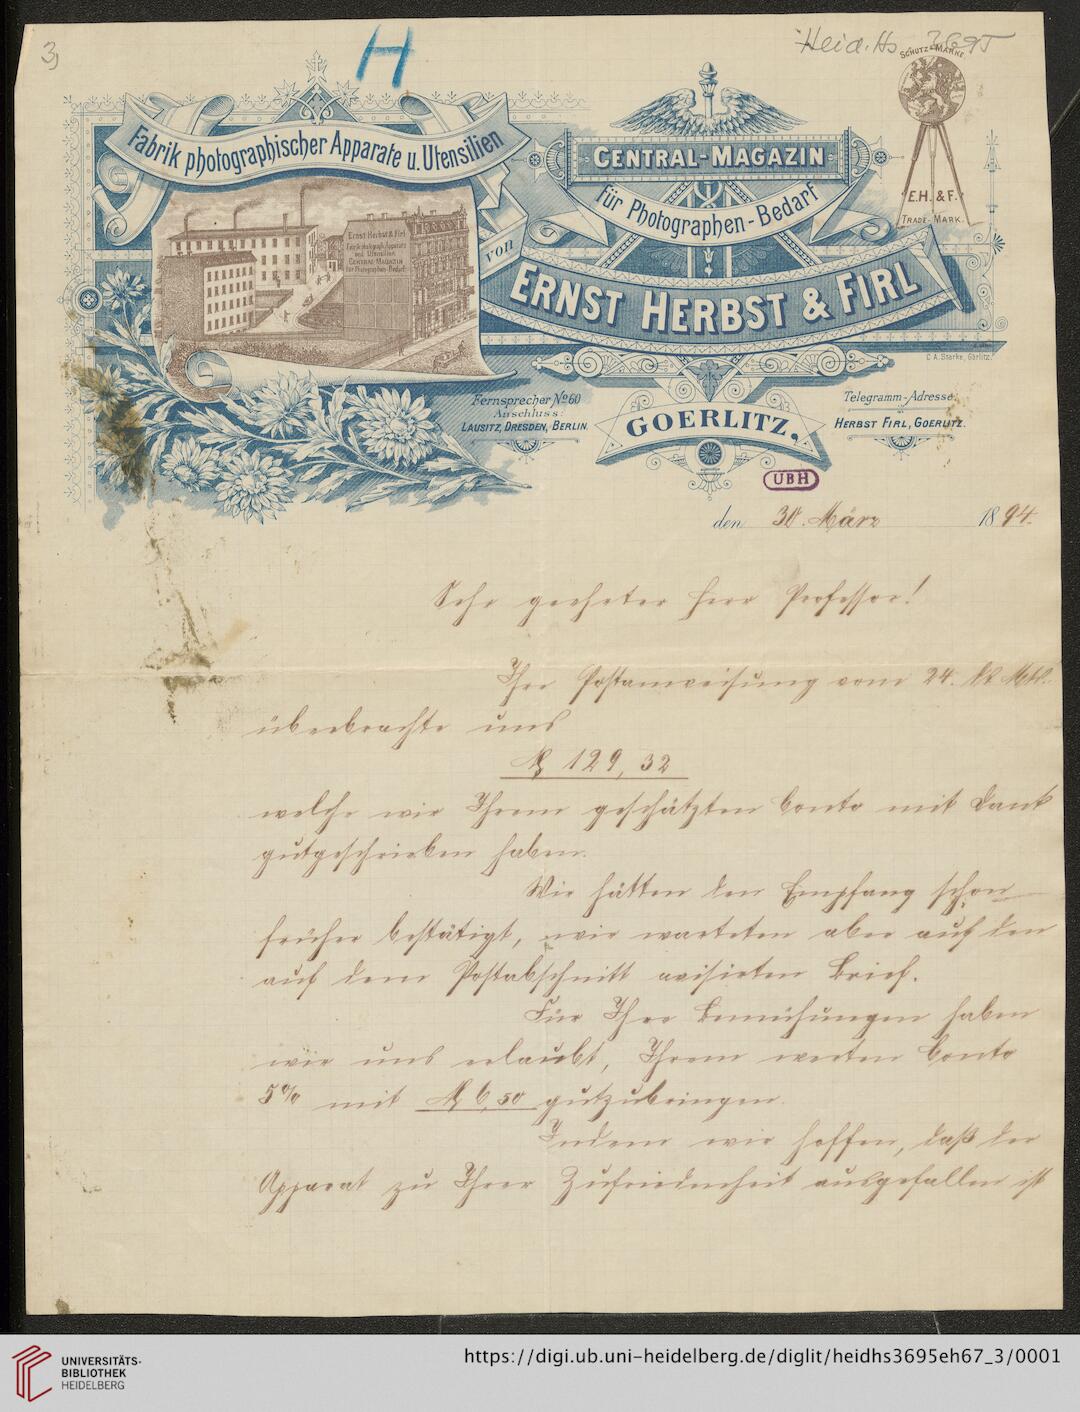 3)
H
Heid. Hs 3695
SCHUTZ-MARKE
E.H. & F.
TRADE-MARK.
Fabrik photographischer Apparate u. Utensilien
von
CENTRAL-MAGAZIN
für Photographen-Bedarf
ERNST HERBST & FIRL
Ernst Herbst & Firl
Fabrik photograph. Apparate
und Utensilien
CENTRAL-MAGAZIN
für Photographen-Bedarf.
C.A. Starke, Görlitz.
Fernsprecher No 60
Anschluss:
LAUSITZ, DRESDEN, BERLIN.
GOERLITZ,
Telegramm-Adresse:
HERBST FIRL, GOERLITZ.
UBH
den 30. März 1894.
Sehr geehrter Herr Professor!
Ihre Postanweisung vom 24. ds. Mts.
überbrachte uns
M 129,32
welche wir Ihrem geschätzten Conto mit Dank
gutgeschrieben haben.
Wir hätten den Empfang schon
früher bestätigt, wir warteten aber auf den
auf dem Postabschnitt avisirten Brief.
Für Ihre Bemühungen haben
wir uns erlaubt, Ihrem werten Conto
5% mit M 6,50 gutzubringen.
Indem wir hoffen, daß der
Apparat zu Ihrer Zufriedenheit ausgefallen ist
UNIVERSITÄTS-
BIBLIOTHEK
HEIDELBERG
https://digi.ub.uni-heidelberg.de/diglit/heidhs3695eh67_3/0001